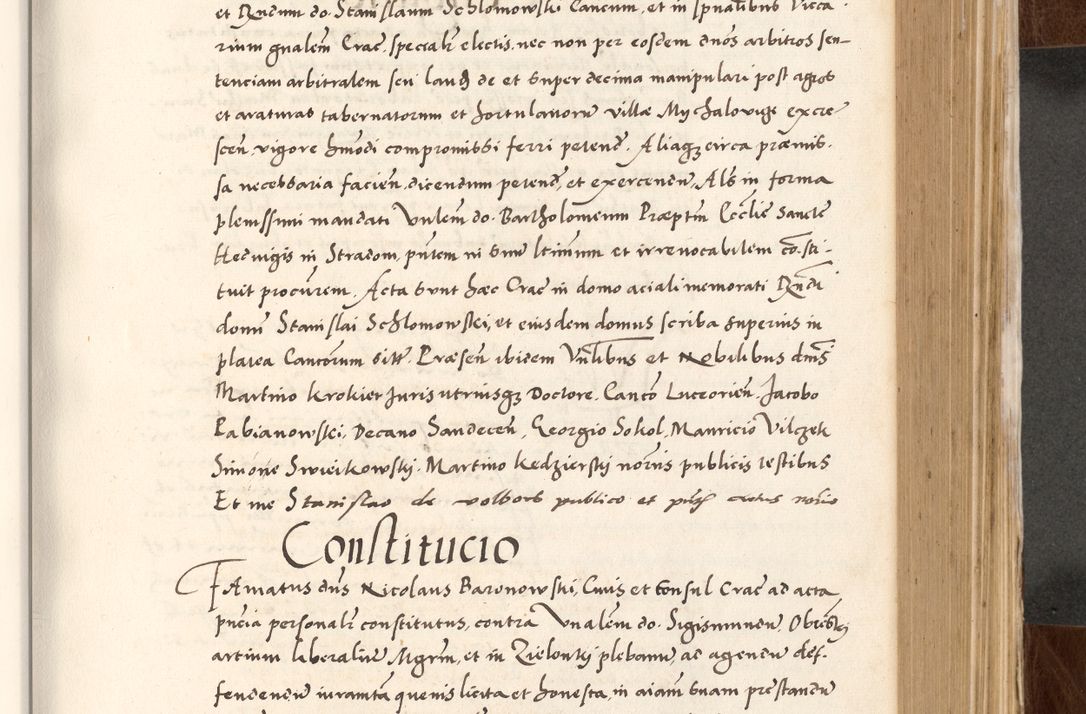 et Rndum do. Stanislaum Schlomowski Cancum, et in spualibus Vica-
rium gnalem Crac. specialr electis, nec non per eosdem dnos arbitros sen-
tenciam arbitralem seu laud de et super decima manipulari post agros
et araturas tabernatorum et hortulanoru villæ Mychalovigt excre-
scen. vigore hmodi compromissi ferri petend. Aliaq circa præmis-
sa necessaria facien, dicendum petend, et exercendu, Als in forma
plenissimi mandati Vnlem do. Bartholomeum Præptm Ecclie Sancte
Hedvigis in Stradom, pntem ni suu ltimum et irrevocabilem co.sti-
tuit procurem. Acta sunt hæc Crac in domo aciali memorati Rndi
domi Stanislai Schlomowski, et eiusdem domus scriba superius in
platea Canconum sitt. Præsen ibidem Vnlibus et Nobilibus dnis
Martino Krokier Juris utriusq Doctore. Canco Luceorien. Jacobo
Pabianowski, Decano Sandecen, Georgio Sokol, Mauricio Vilczek
Simone Swieikowski. Martino Kedzierski noriis publicis testibus
Et me Stanislao de Wolbors publico et actus notrio
Constitucio
Famatus dns Nicolaus Baronowski, Civis et Consul Crac ad acta
pncia personalr constitutus, contra Vnalem do. Sigismundu, Obre
artium liberaliu Mgrm, et in Zielonki plebanu, ad agendu def-
fendendu iuramta quenis licita et honesta, in aiam suam prestandu